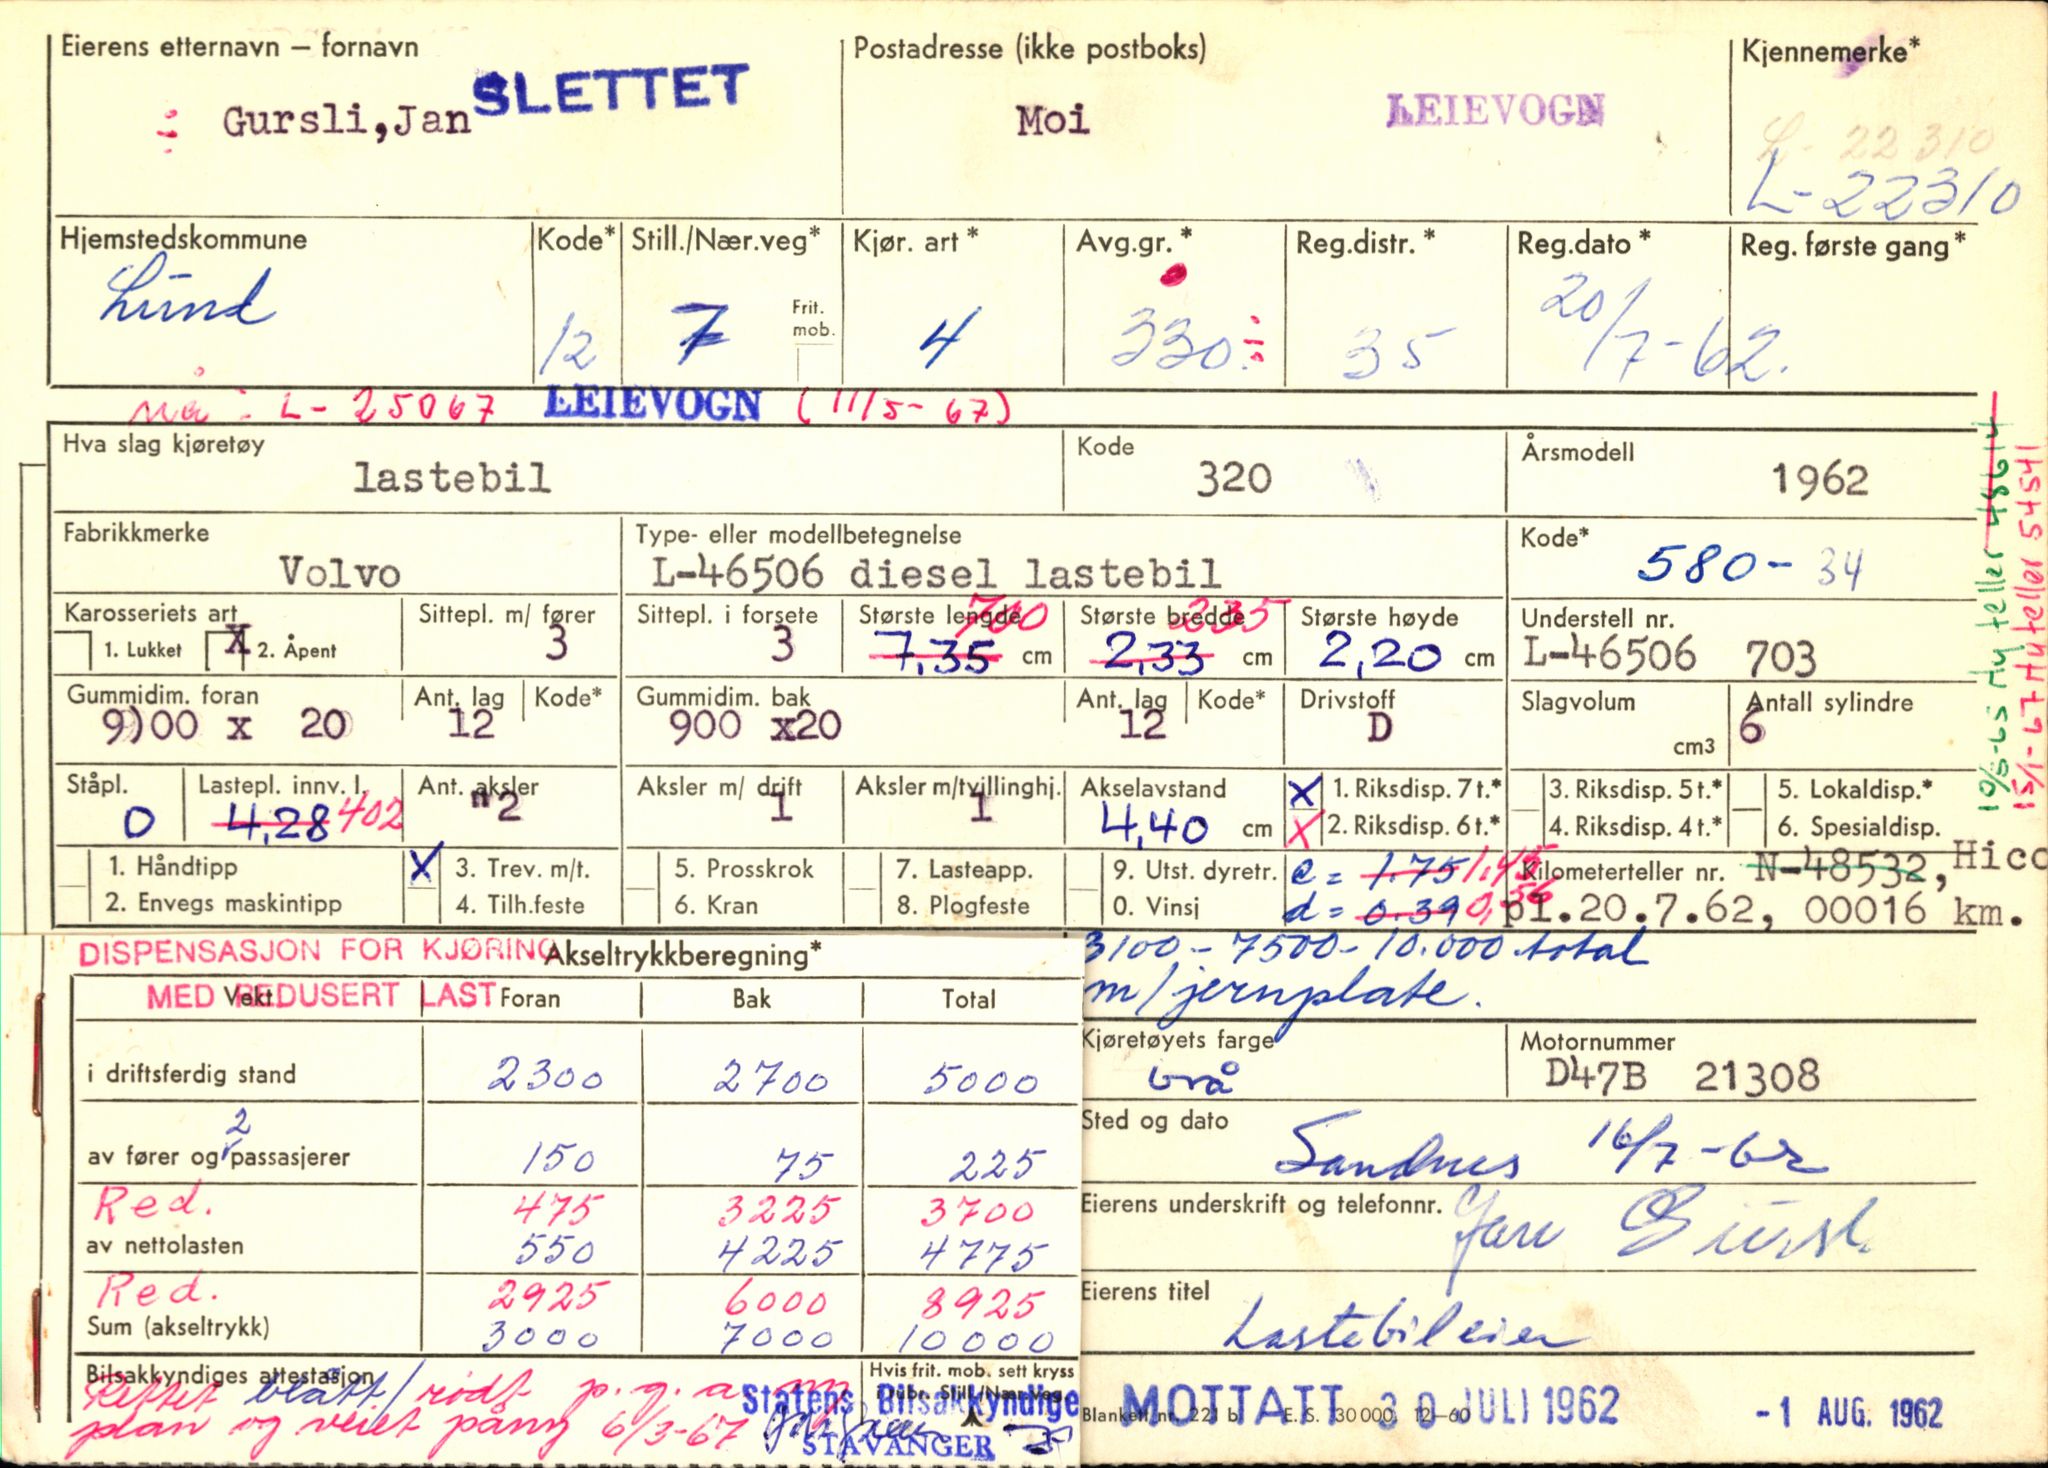 Eierens etternavn – fornavn
Gursli,Jan
SLETTET
Postadresse (ikke postboks)
Moi
LEIEVOGN
Kjennemerke*
L-22310
L-22310
Hjemstedskommune
Lund
Kode*
12
Still./Nær.veg*
7
Frit. mob.
Kjør. art*
4
Avg.gr.*
330
Reg.distr.*
35
Reg.dato*
20/7-62.
Reg. første gang*
nå: L-25067 LEIEVOGN (11/5-67)
Hva slag kjøretøy
lastebil
Kode
320
Årsmodell
1962
Fabrikkmerke
Volvo
Type- eller modellbetegnelse
L-46506 diesel lastebil
Kode*
580-34
Karosseriets art
1. Lukket X 2. Åpent
Sittepl. m/ fører
3
Sittepl. i forsete
3
Største lengde
700
7,35 cm
Største bredde
235
2,33 cm
Største høyde
2,20 cm
Understell nr.
L-46506 703
Gummidim. foran
9)00 x 20
Ant. lag
12
Kode*
Gummidim. bak
900 x20
Ant. lag
12
Kode*
Drivstoff
D
Slagvolum
cm3
Antall sylindre
6
Ståpl.
0
Lastepl. innv. l.
4,28 402
Ant. aksler
"2
Aksler m/ drift
1
Aksler m/tvillinghj.
1
Akselavstand
4,40 cm
X 1. Riksdisp. 7 t.*
X 2. Riksdisp. 6 t.*
3. Riksdisp. 5 t.*
4. Riksdisp. 4 t.*
5. Lokaldisp.*
6. Spesialdisp.
1. Håndtipp
2. Envegs maskintipp
X 3. Trev. m/t.
4. Tilh.feste
5. Prosskrok
6. Kran
7. Lasteapp.
8. Plogfeste
9. Utst. dyretr.
0. Vinsj
e = 1.75 1,45
d = 0.39 0,56
Kilometerteller nr. N-48532, Hico
pl.20.7.62, 00016 km.
10/5-65 Ny teller 48614
15/1-67 Ny teller 54541
3100 - 7500 - 10.000 total
m/jernplate.
DISPENSASJON FOR KJØRING
MED REDUSERT LAST
Akseltrykkberegning*
Vekt Foran Bak Total
i driftsferdig stand 2300 2700 5000
2
av fører og passasjerer 150 75 225
Red. 475 3225 3700
av nettolasten 550 4225 4775
Red. 2925 6000 8925
Sum (akseltrykk) 3000 7000 10000
Bilsakkyndiges attestasjon
Hvis frit. mob. sett kryss
i rubr. Still./Nær.veg.
Rettet blått/rødt p.g.a. ny
plan og veiet påny 6/3-67
Statens Bilsakkyndige
STAVANGER
Kjøretøyets farge
Grå
Motornummer
D47B 21308
Sted og dato
Sandnes 16/7-62
Eierens underskrift og telefonnr.
Jan Gursli
Eierens titel
Lastebileier
Blankett nr. 221 b E.S. 30 000. 12–60
MOTTATT 30 JULI 1962
-1 AUG. 1962